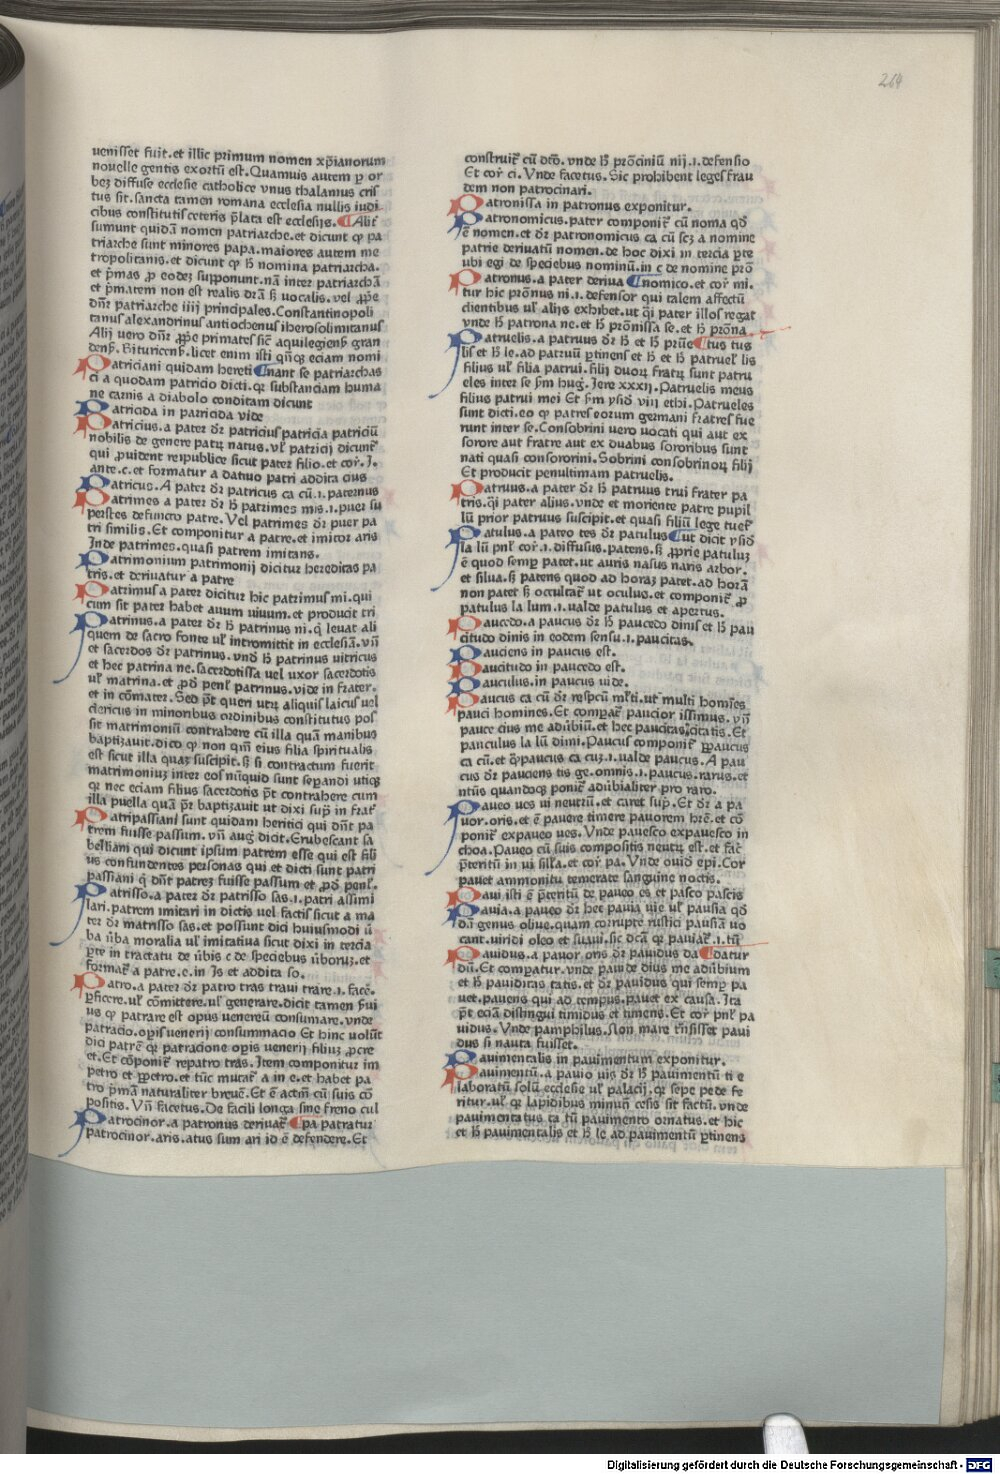 264
uenisset fuit.et illic primum nomen xp̃ianorum
nouelle gentis exortũ est.Quamuis autem ꝑ or
bez diffuse ecclesie catholice vnus thalamus cris
tus sit.sancta tamen romana ecclesia nullis iudi
cibus constitutis ceteris p̃lata est ecclesijs.¶Alit̃
sumunt quidã nomen patriarche.et dicunt ꝙ pa
triarche sunt minores papa.maiores autem me
tropolitanis.et dicunt ꝙ hᷤ nomina patriarcha.
et p̃mas ꝓ eodez supponunt.nã inter patriarchã
et p̃matem non est realis dr̃a sꝫ vocalis.vel ꝓp̃e
dñr patriarche iiij principales.Constantinopoli
tanus alexandrinus antiochenus iherosolimitanus
Alij uero dñr ꝓp̃e primates sic̃ aquilegienꝰ gran
denꝰ.Bituricenꝰ.licet enim isti qñqꝫ eciam nomi
Patriciani quidam hereti ¶nant᷑ se patriarchas
ci a quodam patricio dicti.qꝛ substanciam huma
ne carnis a diabolo conditam dicunt
Patricida in parricida vide
Patricius.a pater dr̃ patricius patricia patriciũ
nobilis de genere patrũ natus.vl̃ patricij dicunt᷑
qui ꝓuident reipublice sicut pater filio.et cor̃.J.
ante.c.et formatur a datiuo patri addita cius
Patricus.A pater dr̃ patricus ca cũ.ı.paternus
Patrimes a pater dr̃ hᷤ patrimes mis.ı.puer su
perstes defuncto patre.Vel patrimes dr̃ puer pa
tri similis.Et componitur a patre.et imitor aris
Jnde patrimes.quasi patrem imitans.
Patrimonium patrimonij dicitur hereditas pa
tris.et deriuatur a patre
Patrimus a pater dicitur hic patrimus mi.qui
cum sit pater habet auum uiuum.et producit tri
Patrinus.a pater dr̃ hᷤ patrinus ni.q̃ leuat ali
quem de sacro fonte vl̃ intromittit in ecclesiã.vñ
et sacerdos dr̃ patrinus.vnd̃ hᷤ patrinus uitricus
et hec patrina ne.sacerdotissa vel uxor sacerdotis
vl̃ matrina.et ꝓd̃ penl̃ patrinus.vide in frater.
et in cõmater.Sed p̃t queri utrũ aliquis laicus uel
clericus in minoribus ordinibus constitutus pos
sit matrimoniũ contrahere cũ illa quã manibus
baptizauit.dico ꝙ non qm̃ eius filia spiritualis
est sicut illa quaz suscipit.sꝫ si contractum fuerit
matrimoniuz inter eos nũquid sunt sep̃andi utiqꝫ
qꝛ nec eciam filius sacerdotis p̃t contrahere cum
illa puella quã p̃r baptizauit ut dixi sup̃ in frat᷑
Patripassiani sunt quidam heritici qui dñt pa
trem fuisse passum.vñ aug᷑ dicit.Erubescant sa
belliani qui dicunt ipsum patrem esse qui est fili
us confundentes personas qui et dicti sunt patri
passiani q̃ dñt patrez fuisse passum et ꝓd̃ penl̃.
Patrisso.a pater dr̃ patrisso sas.ı.patri assimi
lari.patrem imitari in dictis uel factis sicut a ma
ter dr̃ matrisso sas.et possunt dici huiusmodi ũ
ba ũba moralia vl̃ imitatiua sicut dixi in tercia
ꝑte in tractatu de ũbis c de speciebus ũboruz.et
format᷑ a patre.c.in Js et addita so.
Patro.a pater dr̃ patro tras traui trare.ı.facẽ.
ꝑficere.vl̃ cõmittere.vl̃ generare.dicit tamen s̃ui
us ꝙ patrare est opus uenereũ consumare.vnde
patracio.op̃is uenerij consummacio Et hinc uolũt
dici patrẽ qꝛ patracione op̃is uenerij filiuz ꝓcre
et.Et cõponit᷑ repatro tras.Jtem componitur im
petro et ꝑpetro.et tũc mutat᷑ a in e.et habet pa
tro p̃mã naturaliter breuẽ.Et ẽ actm̃ cũ suis cõ
positis.Vñ facetus.De facili longa sine freno cul
Patrocinor.a patronus deriuat᷑ ¶pa patratur
patrocinor.aris.atus sum ari id ẽ defendere.Et
construit᷑ cũ dtõ.vnde hᷤ pr̃ociniũ nij.ı.defensio
Et cor̃ ci.Vnde facetus.Sic prohibent leges frau
dem non patrocinari.
Patronissa in patronus exponitur.
Patronomicus.pater componit᷑ cũ noma qd̃
ẽ nomen.et dr̃ patronomicus ca cũ scꝫ a nomine
patrie deriuatũ nomen.de hoc dixi in tercia ꝑte
ubi egi de speciebus nominũ.in c de nomine pr̃o
Patronus.a pater deriua ¶nomico.et cor̃ mi.
tur hic pr̃onus ni.ı.defensor qui talem affectũ
clientibus vl̃ alijs exhibet.ut q̃i pater illos regat
vnde hᷤ patrona ne.et hᷤ pr̃onissa se.et hᷤ pr̃ona
Patruelis.a patruus dr̃ hᷤ et hᷤ pr̃ue ¶tus tus
lis et hᷤ le.ad patruũ ꝑtinens et hᷤ et hᷤ patruel᷑ lis
filius vl̃ filia patrui.filij duorũ fratrũ sunt patru
eles inter se sm̃ hug᷑.Jere xxxij.Patruelis meus
filius patrui mei Et sm̃ ysid̃ viij ethi.Patrueles
sunt dicti.eo ꝙ patres eorum germani fratres fue
runt inter se.Consobrini uero uocati qui aut ex
sorore aut fratre aut ex duabus sororibus sunt
nati quasi consororini.Sobrini consobrinorũ filij
Et producit penultimam patruelis.
Patruus.a pater dr̃ hᷤ patruus trui frater pa
tris.q̃i pater alius.vnde et moriente patre pupil
lũ prior patruus suscipit.et quasi filiũ lege tuet᷑
Patulus.a pateo tes dr̃ patulus ¶ut dicit ysid̃
la lũ pnl̃ cor̃.ı.diffusus.patens.sꝫ ꝓprie patuluz
ẽ quod semꝑ patet.ut auris nasus naris arbor.
et silua.sꝫ patens quod ad horaz patet.ad horã
non patet sꝫ occultat᷑ ut oculus.et componit᷑ ꝓ
patulus la lum.ı.ualde patulus et apertus.
Paucedo.a paucus dr̃ hᷤ paucedo dinis et hᷤ pau
citudo dinis in eodem sensu.ı.paucitas.
Pauciens in paucus est.
Paucitudo in paucedo est.
Pauculus.in paucus uide.
Paucus ca cũ dr̃ respc̃u ml̃ti.ut᷑ multi homĩes
pauci homines.Et comparat᷑ paucior issimus.vñ
pauce cius me adũbiũ.et hec paucitas citatis.Et
pauculus la lũ dimi.Paucus componit᷑ ꝑpaucus
ca cũ.et q̃ꝓpaucus ca cuz.ı.ualde paucus.A pau
cus dr̃ pauciens tis ge.omnis.ı.paucus.rarus.et
ntũs quandoqꝫ ponit᷑ adũbialiter pro raro.
Paueo ues ui neutrũ.et caret sup̃.Et dr̃ a pa
uor.oris.et ẽ pauere timere pauorem hr̃e.et cõ
ponit᷑ expaueo ues.Vnde pauesco expauesco in
choa.Paueo cũ suis compositis neutrũ est.et fac̃
p̃teritũ in ui sill̃a.et cor̃ pa.Vnde ouid̃ epi.Cor
pauet ammonitu temerate sanguine noctis.
Paui isti ẽ p̃teritũ de paueo es et pasco pascis
Pauia.a paueo dr̃ hec pauia uie vl̃ pausia qd̃
dã genus oliue.quam corrupte rustici pausiã uo
cant.uiridi oleo et suaui.sic dc̃a qꝛ pauiat᷑.ı.tũ
Pauidus.a pauor oris dr̃ pauidus da ¶datur
dũ.Et comꝑatur.vnde pauide dius me adũbium
et hᷤ pauiditas tatis.et dr̃ pauidus qui semꝑ pa
uet.pauens qui ad tempus.pauet ex causa.Jta
p̃t eciã distingui timidus et timens.Et cor̃ pnl̃ pa
uidus.Vnde pamphilus.Non mare tr̃nsisset paui
dus si nauta fuisset.
Pauimentalis in pauimentum exponitur.
Pauimentũ.a pauio uis dr̃ hᷤ pauimentũ ti e
laboratũ solũ ecclesie vl̃ palacij.qꝛ sepe pede fe
ritur.vl̃ qꝛ lapidibus minutĩ cesis sit factũ.vnde
pauimentatus ta tũ pauimento ornatus.et hic
et hᷤ pauimentalis et hᷤ le ad pauimentũ ꝑtinens
Digitalisierung gefördert durch die Deutsche Forschungsgemeinschaft - DFG